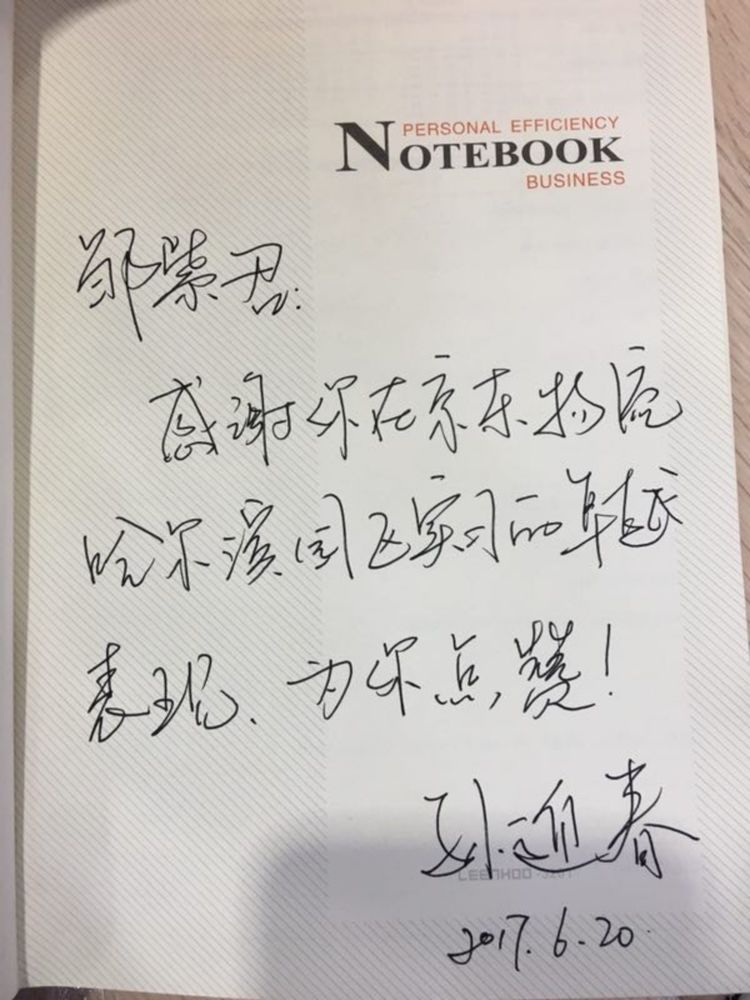 PERSONAL EFFICIENCY
NOTEBOOK
BUSINESS
郑紫君:
感谢你在京东物流
哈尔滨园区实习的卓越
表现、为你点赞!
孙迎春
LEENHOO
2017.6.20